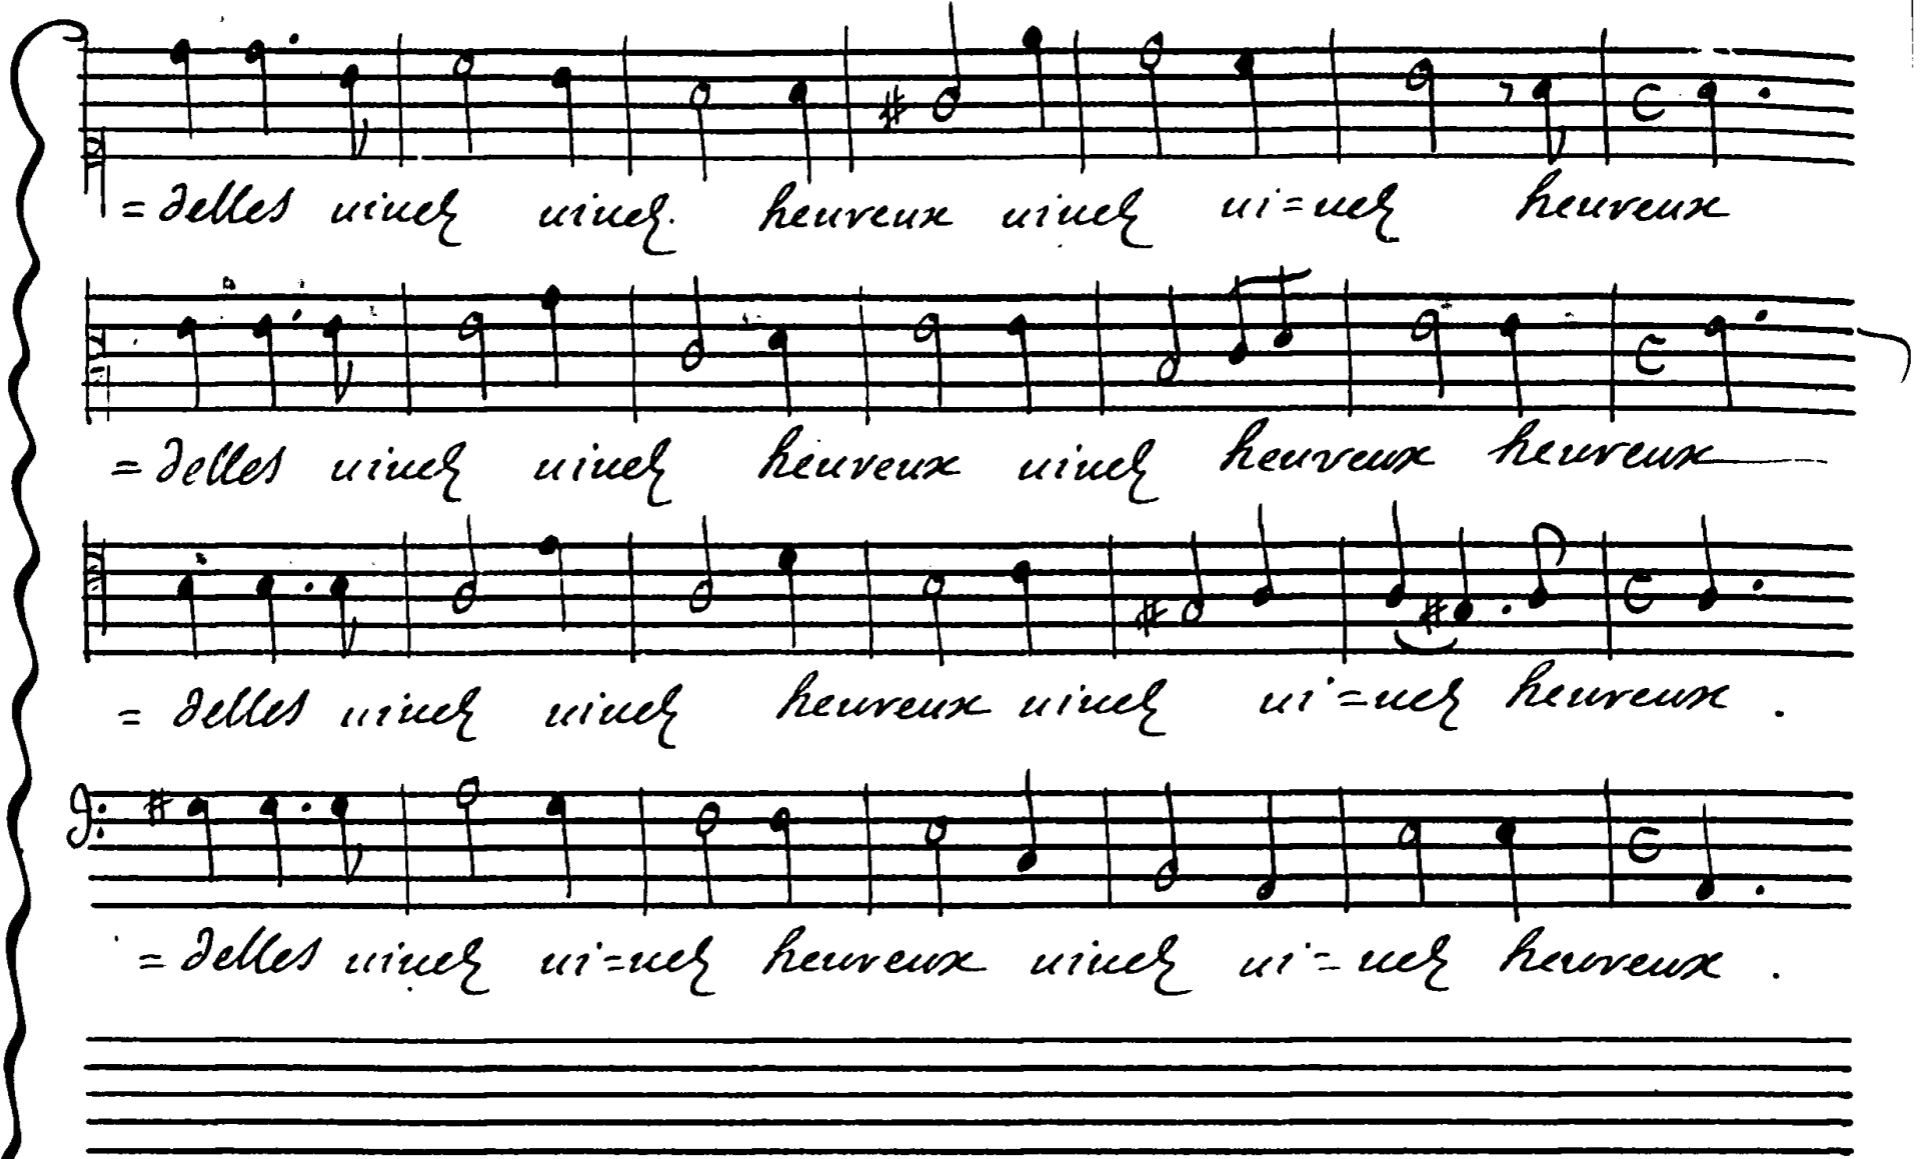 =delles uiuez uiuez. heureux uiuez ui=uez heureux
=delles uiuez uiuez heureux uiuez heureux heureux
=delles uiuez uiuez heureux uiuez ui=uez heureux .
=delles uiuez ui=uez heureux uiuez ui=uez heureux .